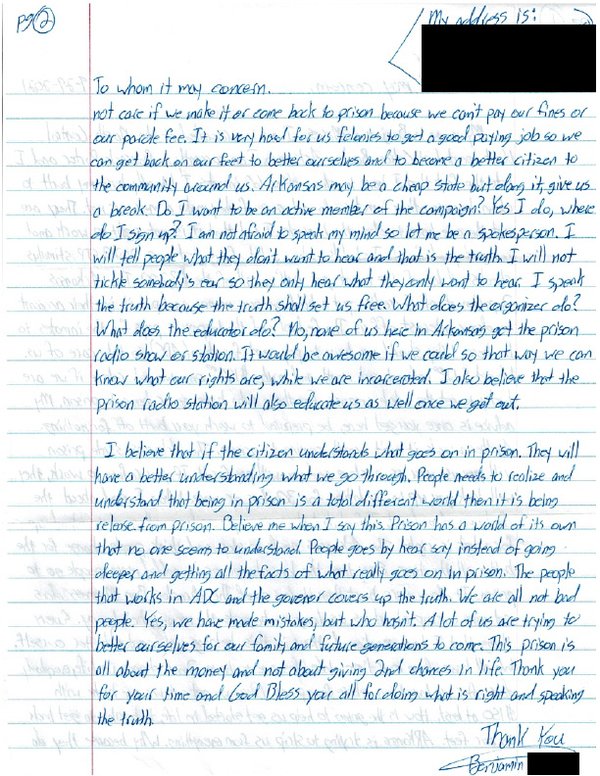 pg 2
My address is:
To whom it may concern.
not care if we make it or come back to prison because we can't pay our fines or
our parole fee. It is very hard for us felonies to get a good paying job so we
can get back on our feet to better ourselves and to become a better citizen to
the community around us. Arkansas may be a cheap state but dang it, give us
a break. Do I want to be an active member of the campaign? Yes I do, where
do I sign up? I am not afraid to speak my mind so let me be a spokesperson. I
will tell people what they don't want to hear and that is the truth. I will not
tickle somebody's ear so they only hear what they only want to hear. I speak
the truth because the truth shall set us free. What does the organizer do?
What does the educator do? No, none of us here in Arkansas get the prison
radio show or station. It would be awesome if we could so that way we can
know what our rights are, while we are incarcerated. I also believe that the
prison radio station will also educate us as well once we get out.
I believe that if the citizen understands what goes on in prison. They will
have a better understanding what we go through. People needs to realize and
understand that being in prison is a total different world then it is being
release from prison. Believe me when I say this. Prison has a world of its own
that no one seems to understand. People goes by hear say instead of going
deeper and getting all the facts of what really goes on in prison. The people
that works in ADC and the govenor covers up the truth. We are all not bad
people. Yes, we have made mistakes, but who hasn't. A lot of us are trying to
better ourselves for our family and future generations to come. This prison is
all about the money and not about giving 2nd chances in life. Thank you
for your time and God Bless you all for doing what is right and speaking
the truth.
Thank You
Benjamin